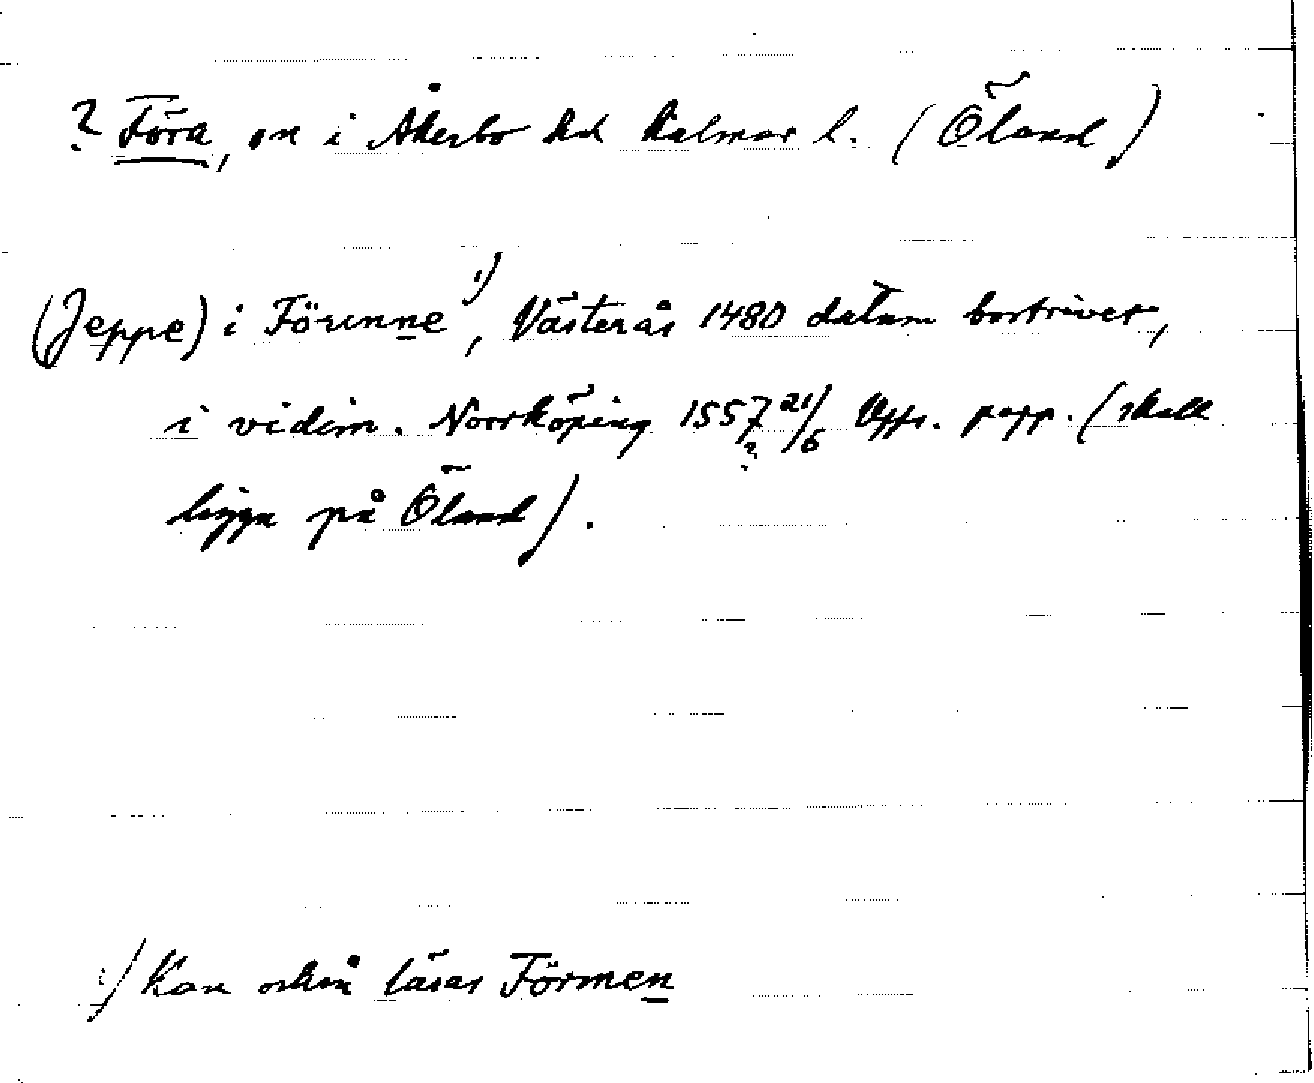 ? Föra, on i Åkerbo hd Kalmar l. (Öland)
(Jeppe) i Förenne 1), Västerås 1480 datum bortrivet,
i vidim. Norrköping 1557 21/6 Upps. papp. (skall
?
ligga på Öland).
1) Kan också läsas Förmen